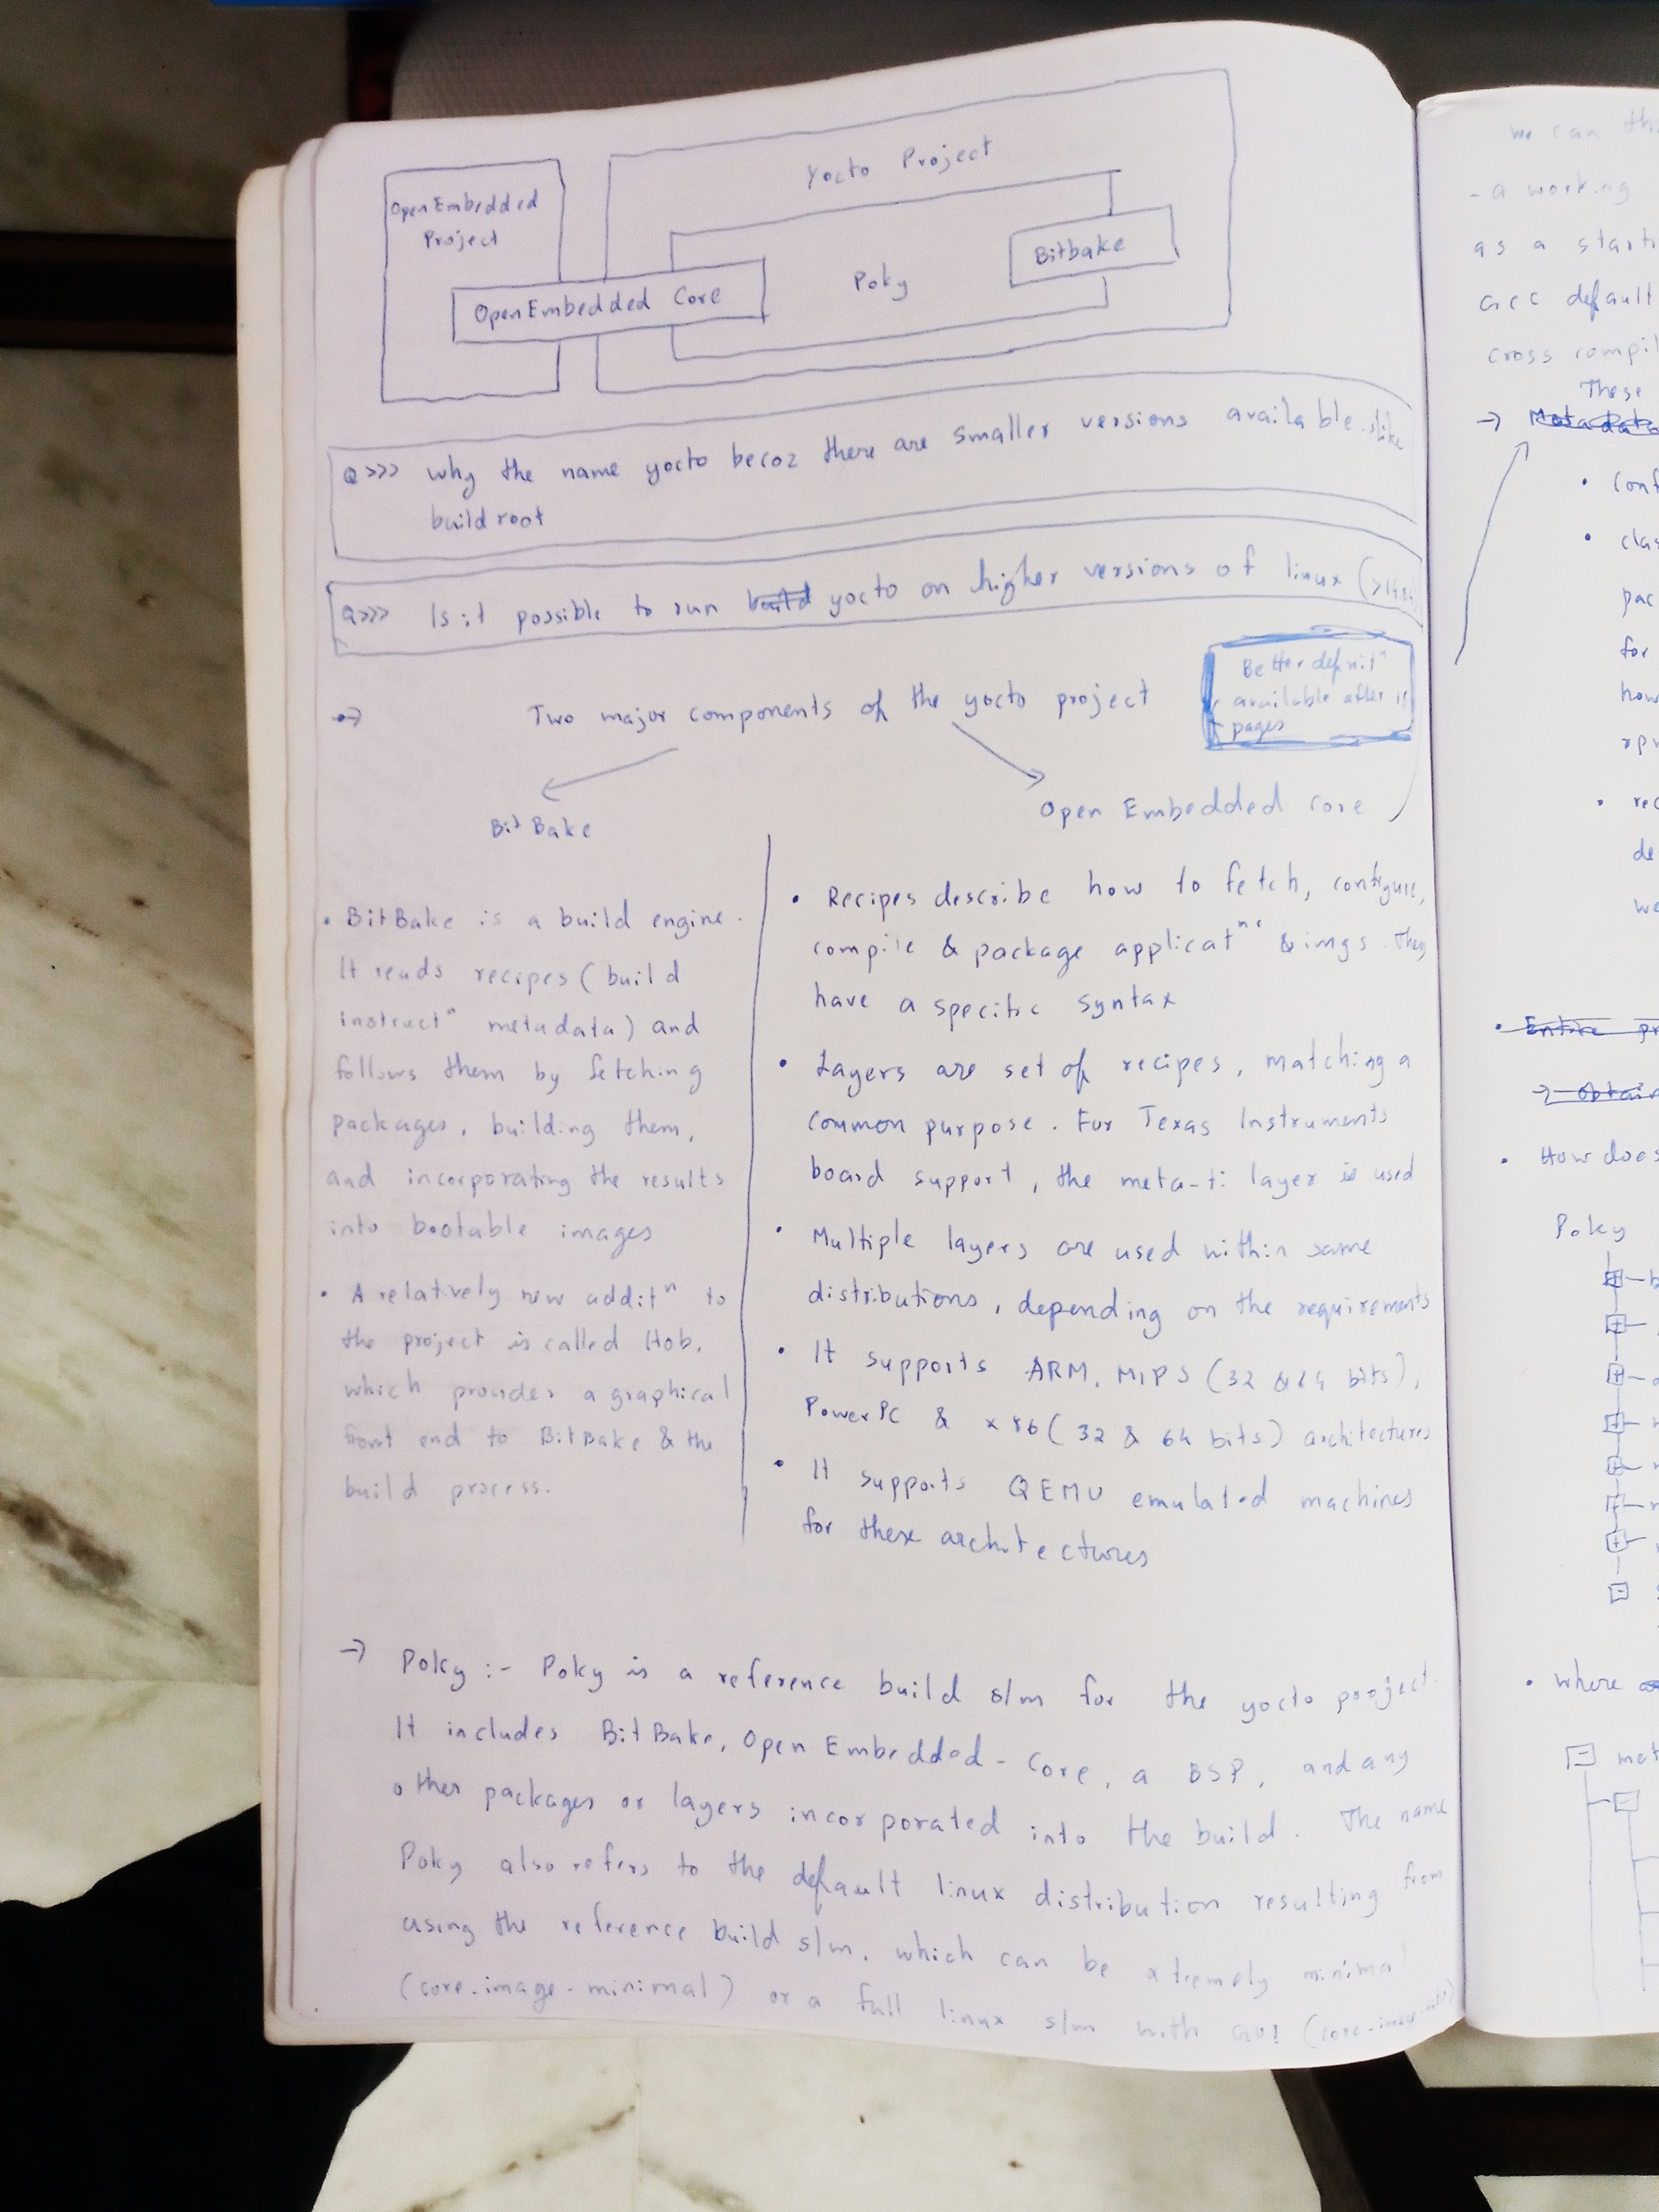 Yocto Project
OpenEmbedded
Project
Bitbake
Poky
OpenEmbedded Core
Q >>> why the name yocto becoz there are smaller versions available like
buildroot
Q>>> Is it possible to run build yocto on higher versions of linux
Better definitⁿ
available after
pages
→ Two major components of the yocto project
BitBake
Open Embedded core
• BitBake is a build engine.
It reads recipes (build
instructⁿ metadata) and
follows them by fetching
packages, building them,
and incorporating the results
into bootable images
• A relatively new additⁿ to
the project is called Hob,
which provides a graphical
front end to BitBake & the
build process.
• Recipes describe how to fetch, configure,
compile & package applicatⁿˢ & imgs. They
have a specific syntax
• Layers are set of recipes, matching a
common purpose. For Texas Instruments
board support, the meta-ti layer is used
• Multiple layers are used within same
distributions, depending on the requirements
• It supports ARM, MIPS (32 & 64 bits),
PowerPC & x86 (32 & 64 bits) architectures
• It supports QEMU emulated machines
for these architectures
→ Poky :- Poky is a reference build s/m for the yocto project.
It includes BitBake, OpenEmbedded-Core, a BSP, and any
other packages or layers incorporated into the build. The name
Poky also refers to the default linux distribution resulting from
using the reference build s/m, which can be extremely minimal
(core-image-minimal) or a full linux s/m with GUI
we can
- a working
as a
GCC default
cross
These
→ Metadata
•
•
for
how
•
we
• Entire
→
• How does
Poky
• where